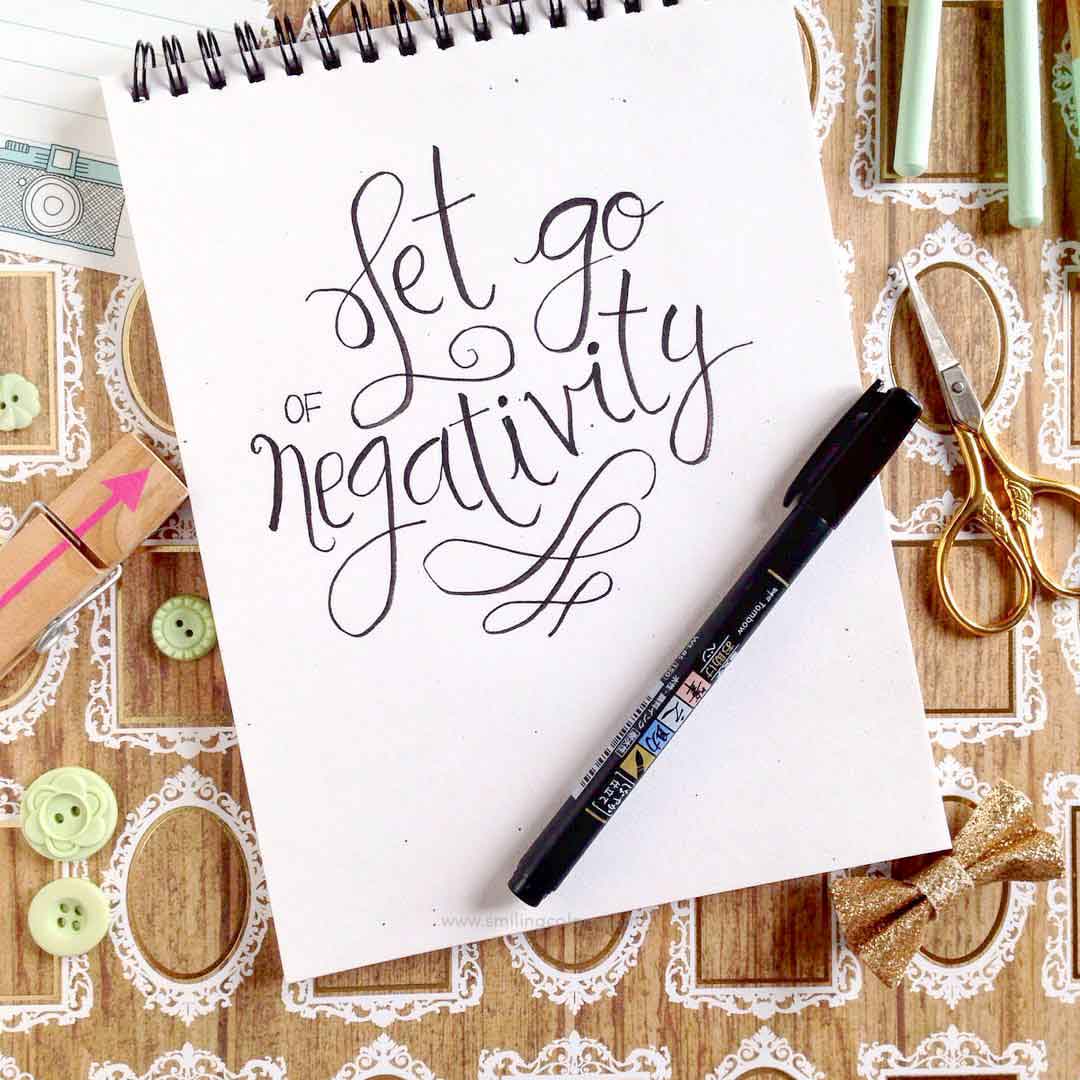 Let go
OF
negativity
Tombow
筆
www.smilingcol